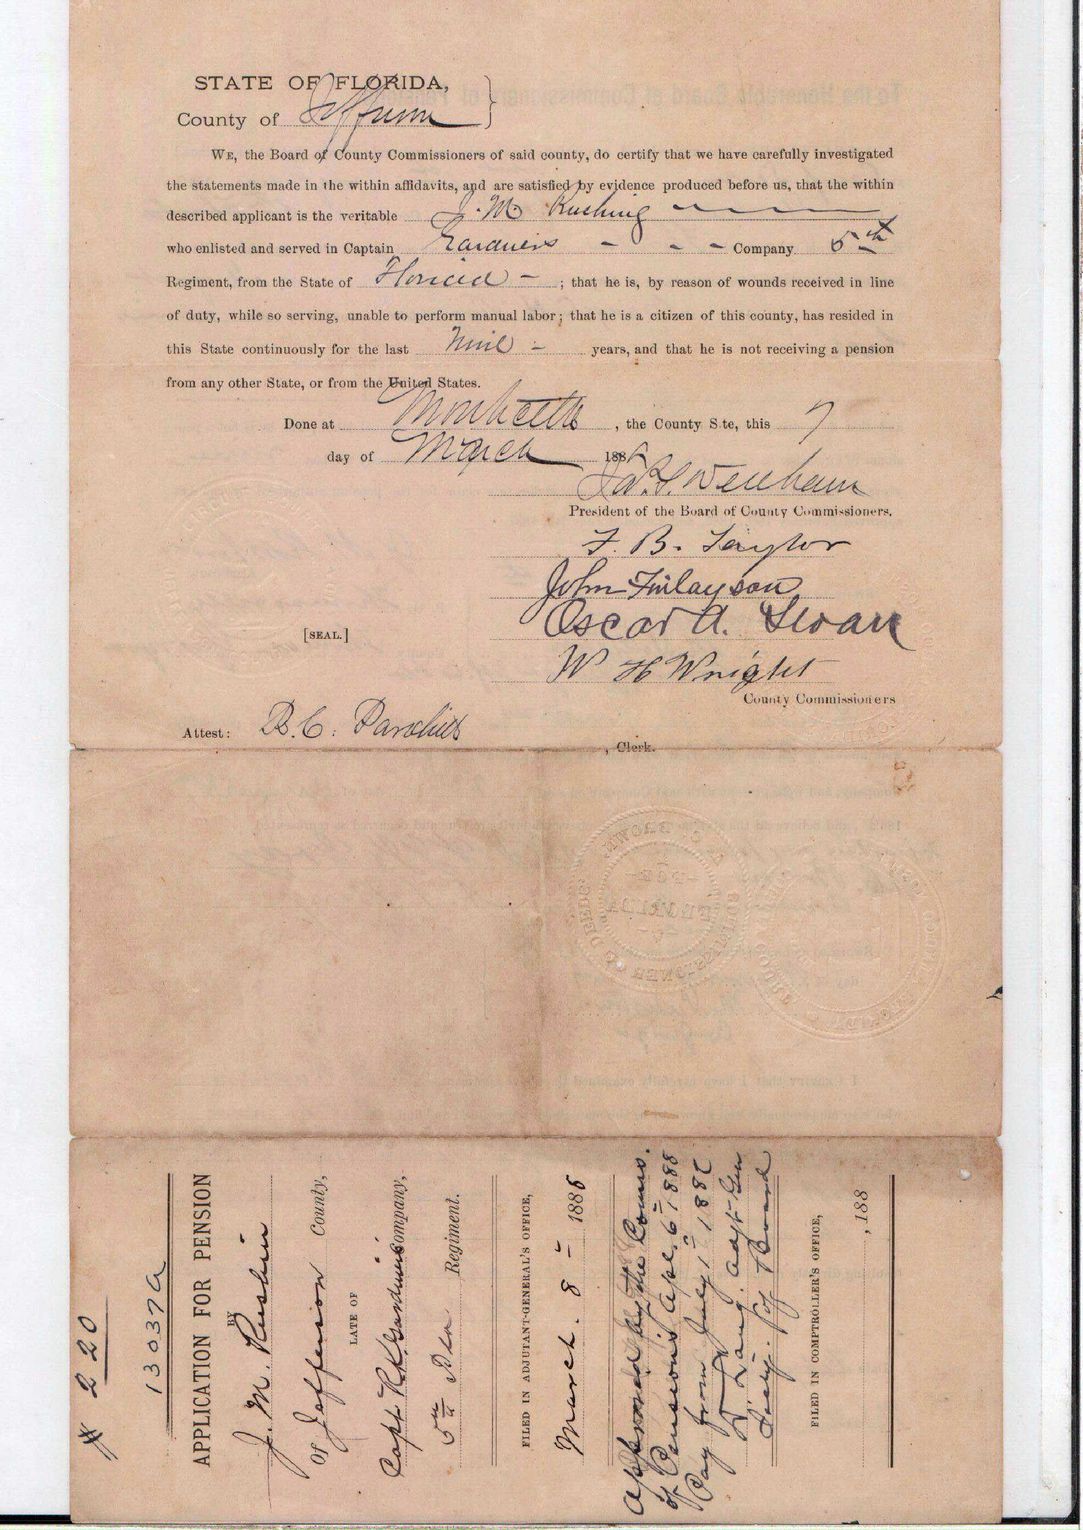 STATE OF FLORIDA,
County of Jefferson
WE, the Board of County Commissioners of said county, do certify that we have carefully investigated
the statements made in the within affidavits, and are satisfied by evidence produced before us, that the within
described applicant is the veritable J. M. Rushing
who enlisted and served in Captain Gardners - - - Company 5th
Regiment, from the State of Florida - ; that he is, by reason of wounds received in line
of duty, while so serving, unable to perform manual labor; that he is a citizen of this county, has resided in
this State continuously for the last Nine - years, and that he is not receiving a pension
from any other State, or from the United States.
Done at Monticello, the County Site, this 7
day of March 188
Wenham
President of the Board of County Commissioners.
F. B. Taylor
John Finlayson
Oscar A. Sloan
W H Wright
County Commissioners
[SEAL.]
Attest: B. C., Clerk.
# 220
13037A
APPLICATION FOR PENSION
BY
J. M. Rushin
Of Jefferson County,
LATE OF
Capt R. K. Gardners Company,
5th Fla Regiment.
FILED IN ADJUTANT-GENERAL'S OFFICE,
March. 8 - 188
Approved by the Comrs.
of Pensions Apl. 6 1888
Pay from July 1st 188
D. Lang. Adjt Gen
Secty. of Board
FILED IN COMPTROLLER'S OFFICE,
, 188